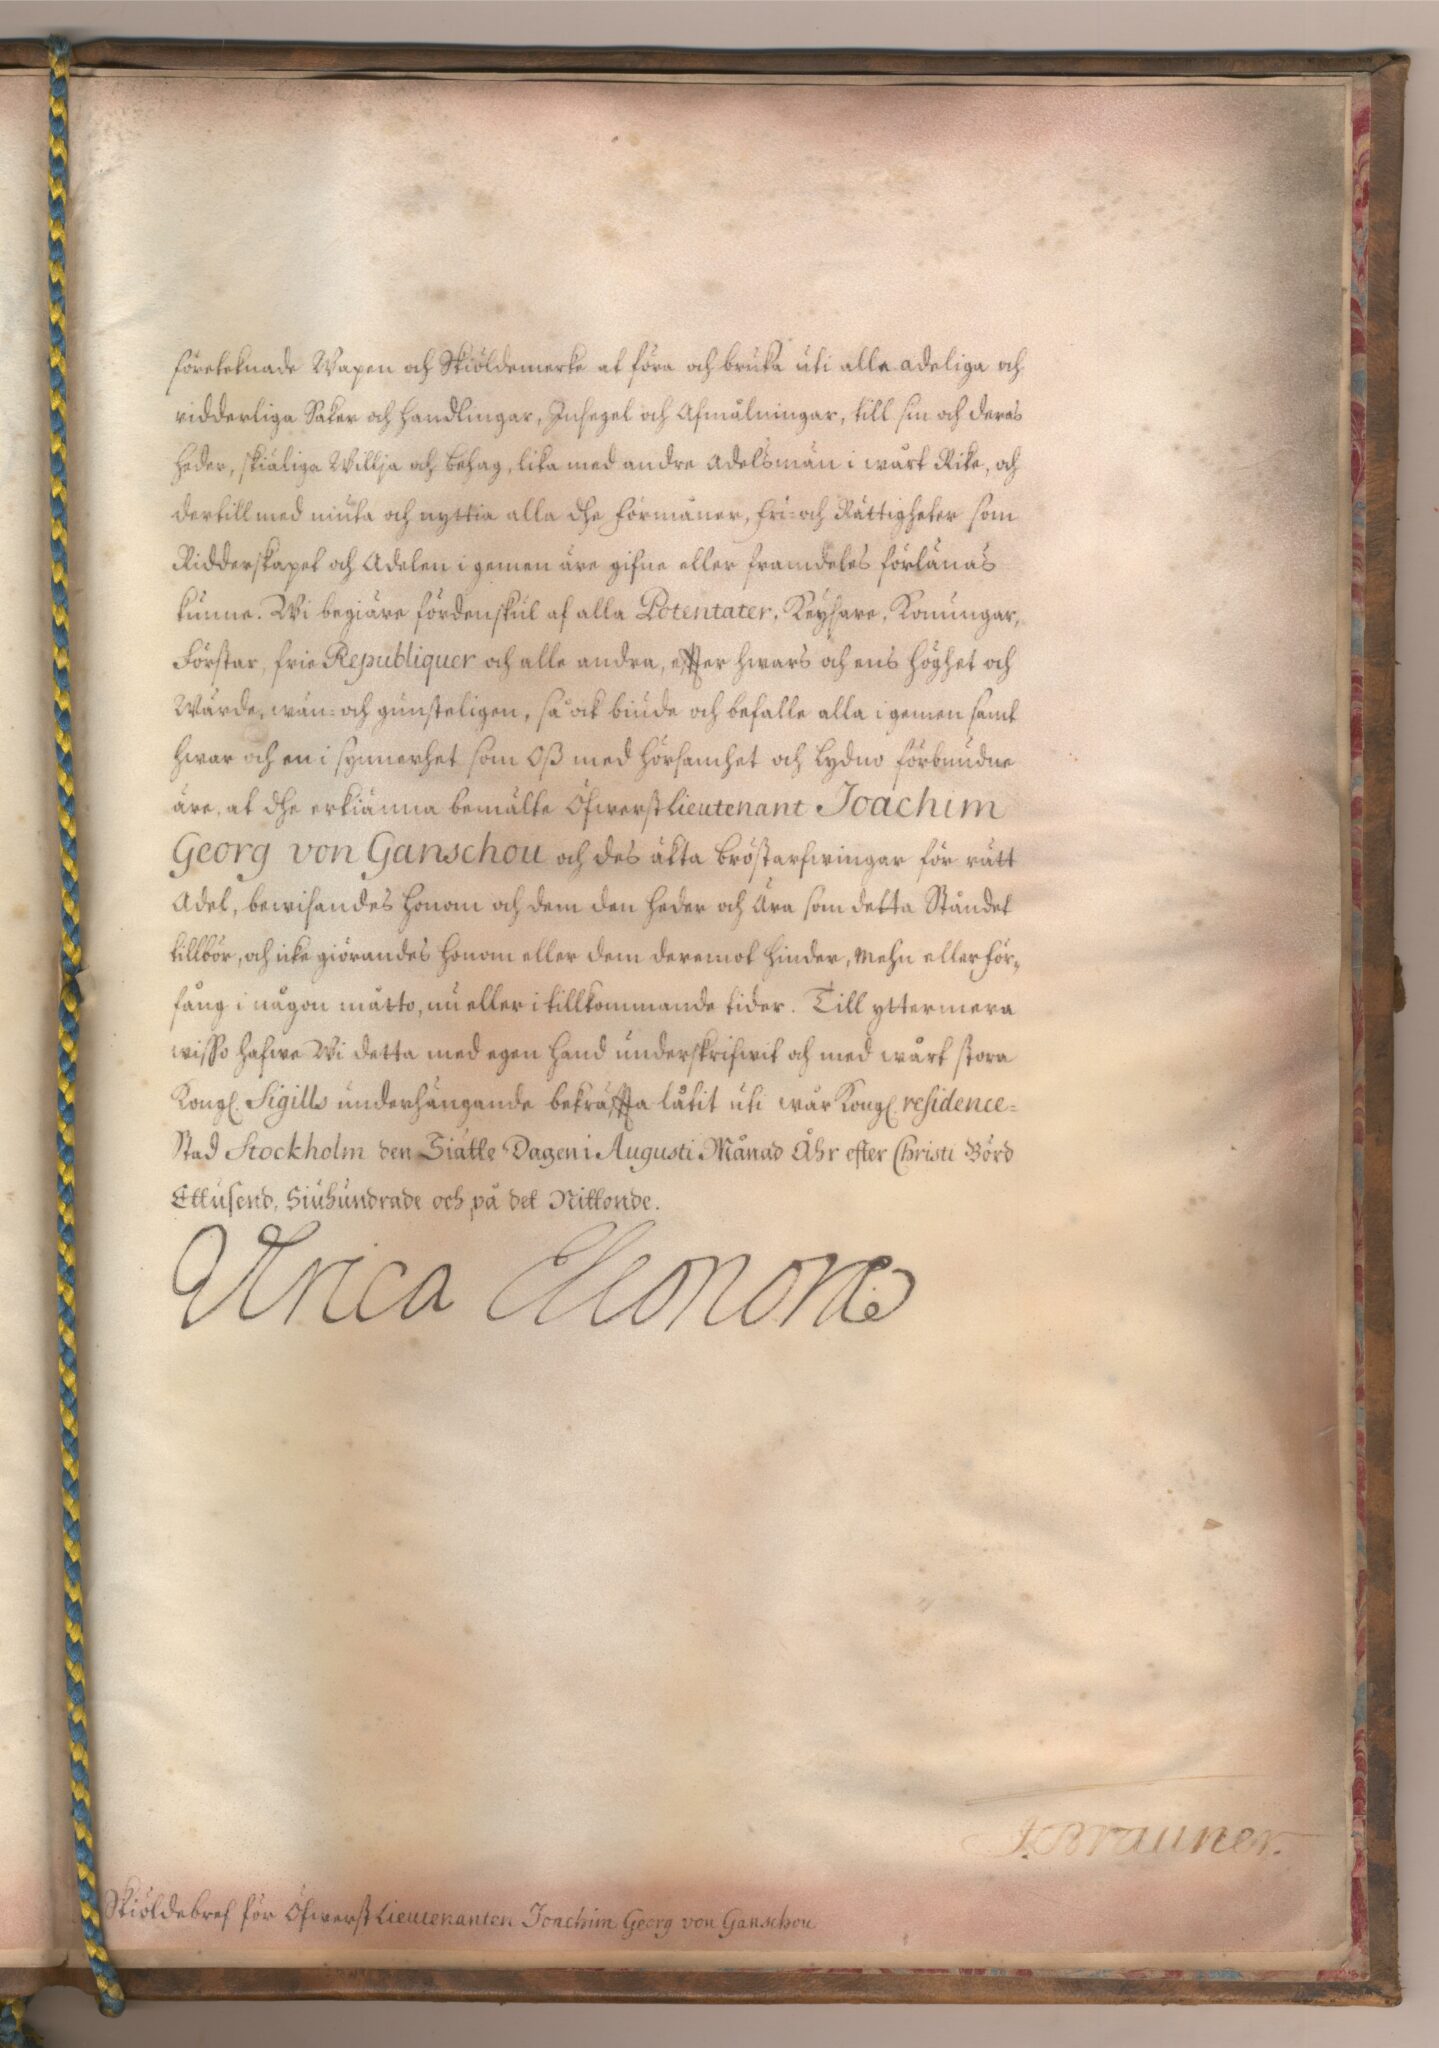 företeknade Wapen och Skiöldemerke at föra och bruka uti alla adeliga och
ridderliga Saker och handlingar, Insegel och Afmålningar, till sin och deras
heder, skiäliga Willja och behag, lika med andre Adelsmän i wårt Rike, och
dertill med niuta och nyttia alla dhe förmåner, fri= och Rättigheter som
Ridderskapet och Adelen i gemen äre gifne eller framdeles förlänas
kunne. Wi begiäre fördenskul af alla Potentater, Keysare, Konungar,
Förstar, frie Republiquer och alle andra, efter hwars och ens höghet och
Wärde, wän= och gunsteligen, så ock biude och befalle alla i gemen samt
hwar och en i synnerhet som Oß med hörsamhet och Lydno förbundne
äre, at dhe erkiänna bemälte Öfwerst Lieutenant Joachim
Georg von Ganschou och des äkta bröstarfwingar för rätt
Adel, bewisandes honom och dem den heder och Ära som detta Ståndet
tillbör, och icke giörandes honom eller dem deremot hinder, Mehn eller för=
fång i någon måtto, nu eller i tillkommande tider. Till yttermera
wisso hafwe Wi detta med egen hand underskrifwit och med wårt stora
Kongl. Sigills underhängande bekräffta låtit uti wår Kongl. residence=
Stad Stockholm den Siätte Dagen i Augusti Månad Åhr efter Christi Börd
Ettusend, Siuhundrade och på det Nittonde.
Ulrica Eleonora
J. Brauner.
Skiöldebref för Öfwerst Lieutenanten Joachim Georg von Ganschou